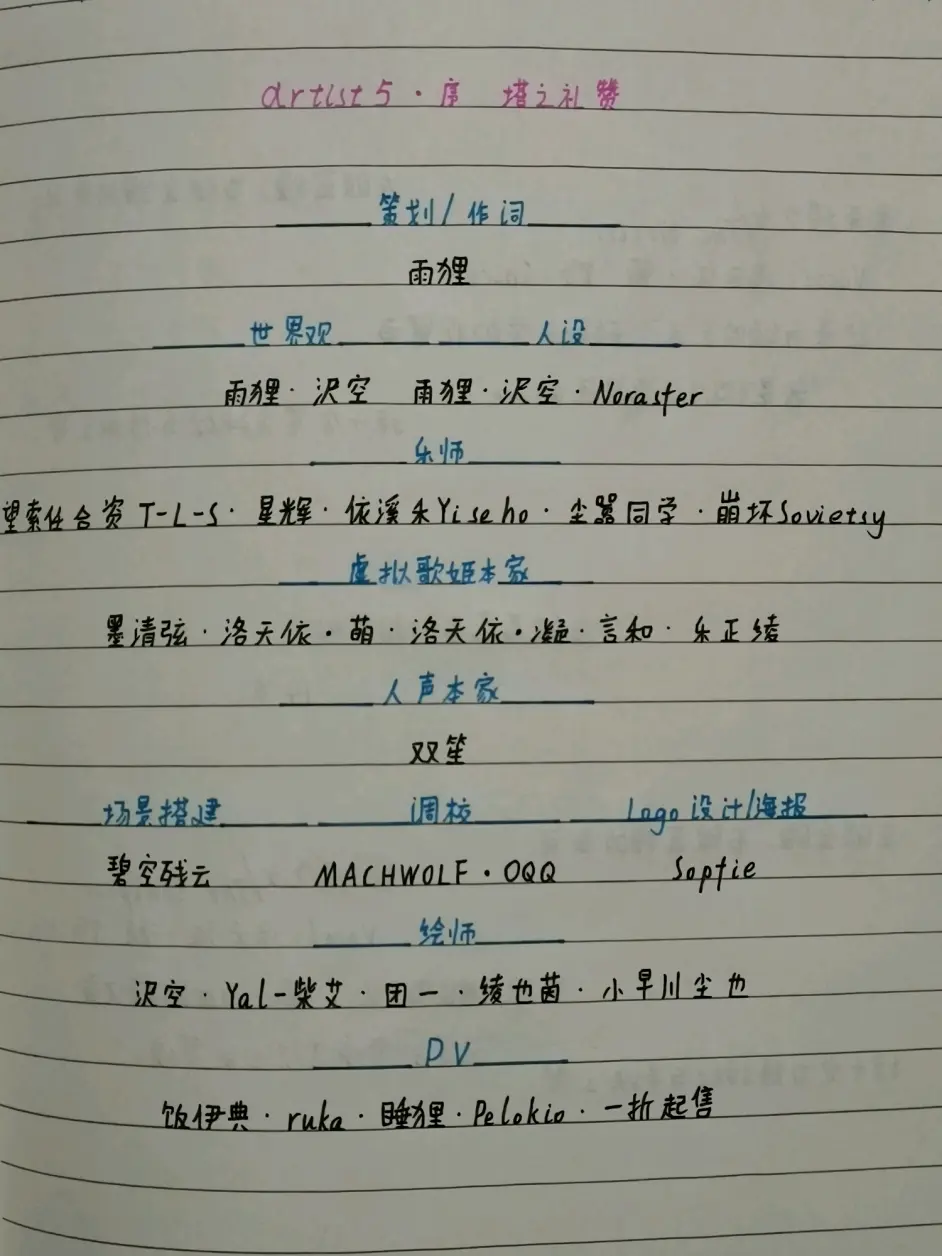 artist5·序 塔之礼赞
策划/作词
雨狸
世界观 人设
雨狸·沢空 雨狸·沢空·Noraster
乐师
望索任合资 T-L-S·星辉·依溪禾Yiseho·尘嚣同学·崩坏Sovietsy
虚拟歌姬本家
墨清弦·洛天依·萌·洛天依·凝·言和·乐正绫
人声本家
双笙
场景搭建 调校 Logo设计/海报
碧空残云 MACHWOLF·OQQ Soptie
绘师
沢空·Yal-柴艾·团一·绫也茵·小早川尘也
PV
饭伊典·ruka·睡狸·Pelokio·一折起售